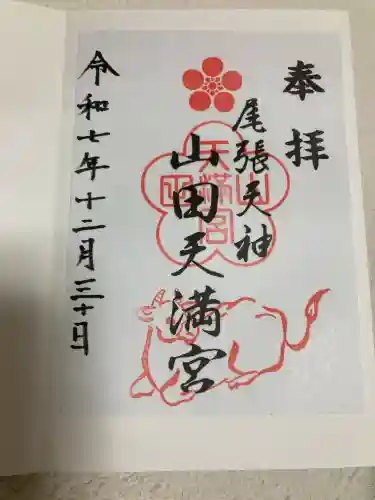 奉拝
尾張天神
山田天満宮
令和七年十二月三十日
山田天満宮